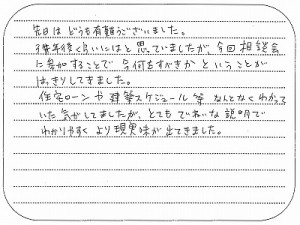 先日は どうも有難うございました。
3年後くらいにはと思っていましたが 今回相談会
に参加することで 今何をすべきか ということが
はっきりしてきました。
住宅ローンや 建築スケジュール等 なんとなくわかって
いた気がしてましたが、とてもていねいな説明で
わかりやすく より現実味が出てきました。